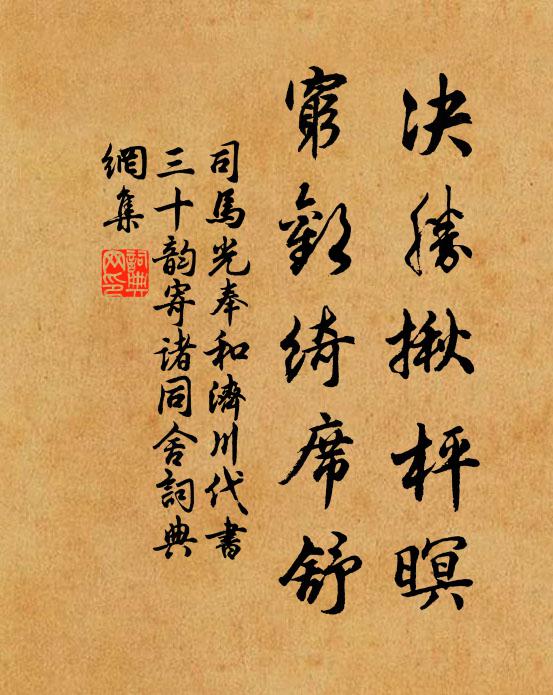 决勝揪枰暝
窮歡綺席舒
司馬光奉和濟川代書
三十韵寄诸同舍詞典
網集
詞典
网印